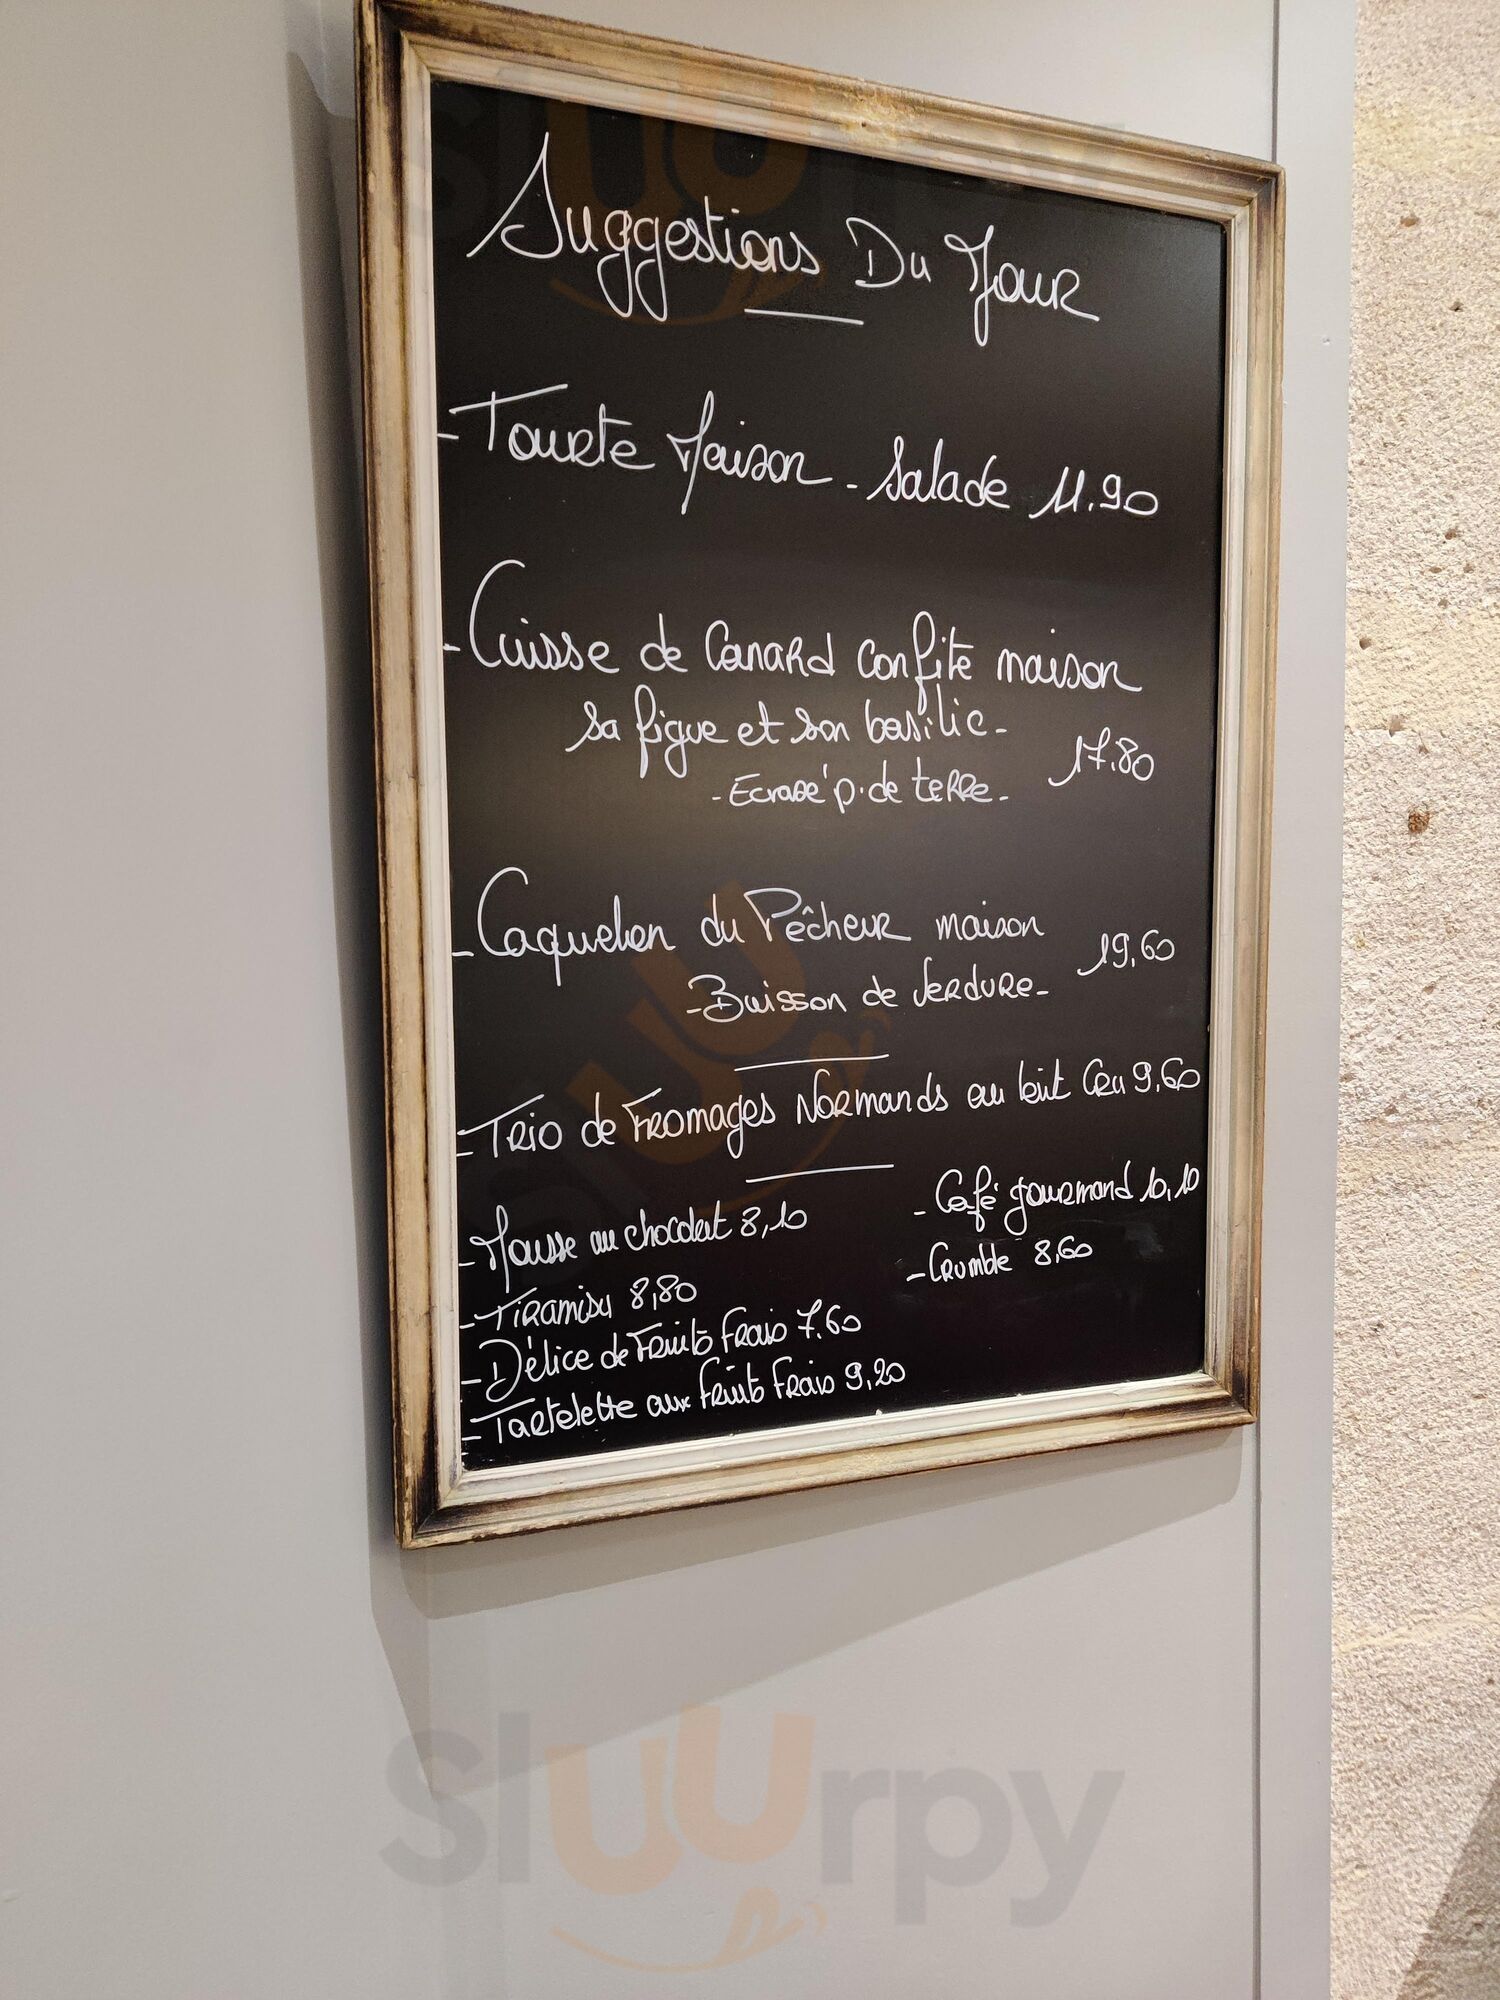 Suggestions Du Jour
- Tourte Maison - Salade 11.90
- Cuisse de Canard confite maison
sa figue et son basilic -
- Ecrasé p. de terre - 17.80
- Caquelon du Pêcheur maison
- Buisson de Verdure - 19,60
- Trio de Fromages Normands au lait Cru 9,60
- Mousse au chocolat 8,10
- Tiramisu 8,80
- Délice de Fruits Frais 7.60
- Tartelette aux Fruits Frais 9,20
- Café gourmand 10,10
- Crumble 8,60
Sluurpy